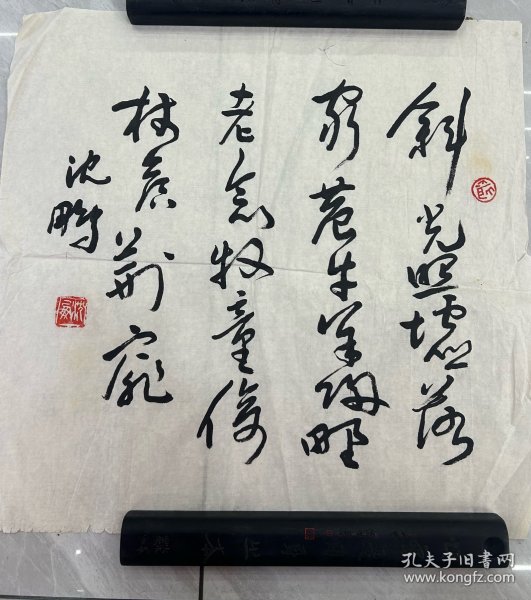 斜光照墟落
窮巷牛羊歸野
老念牧童倚
杖候荆扉
沈鵬
孔夫子旧书网
www.kongfz.com